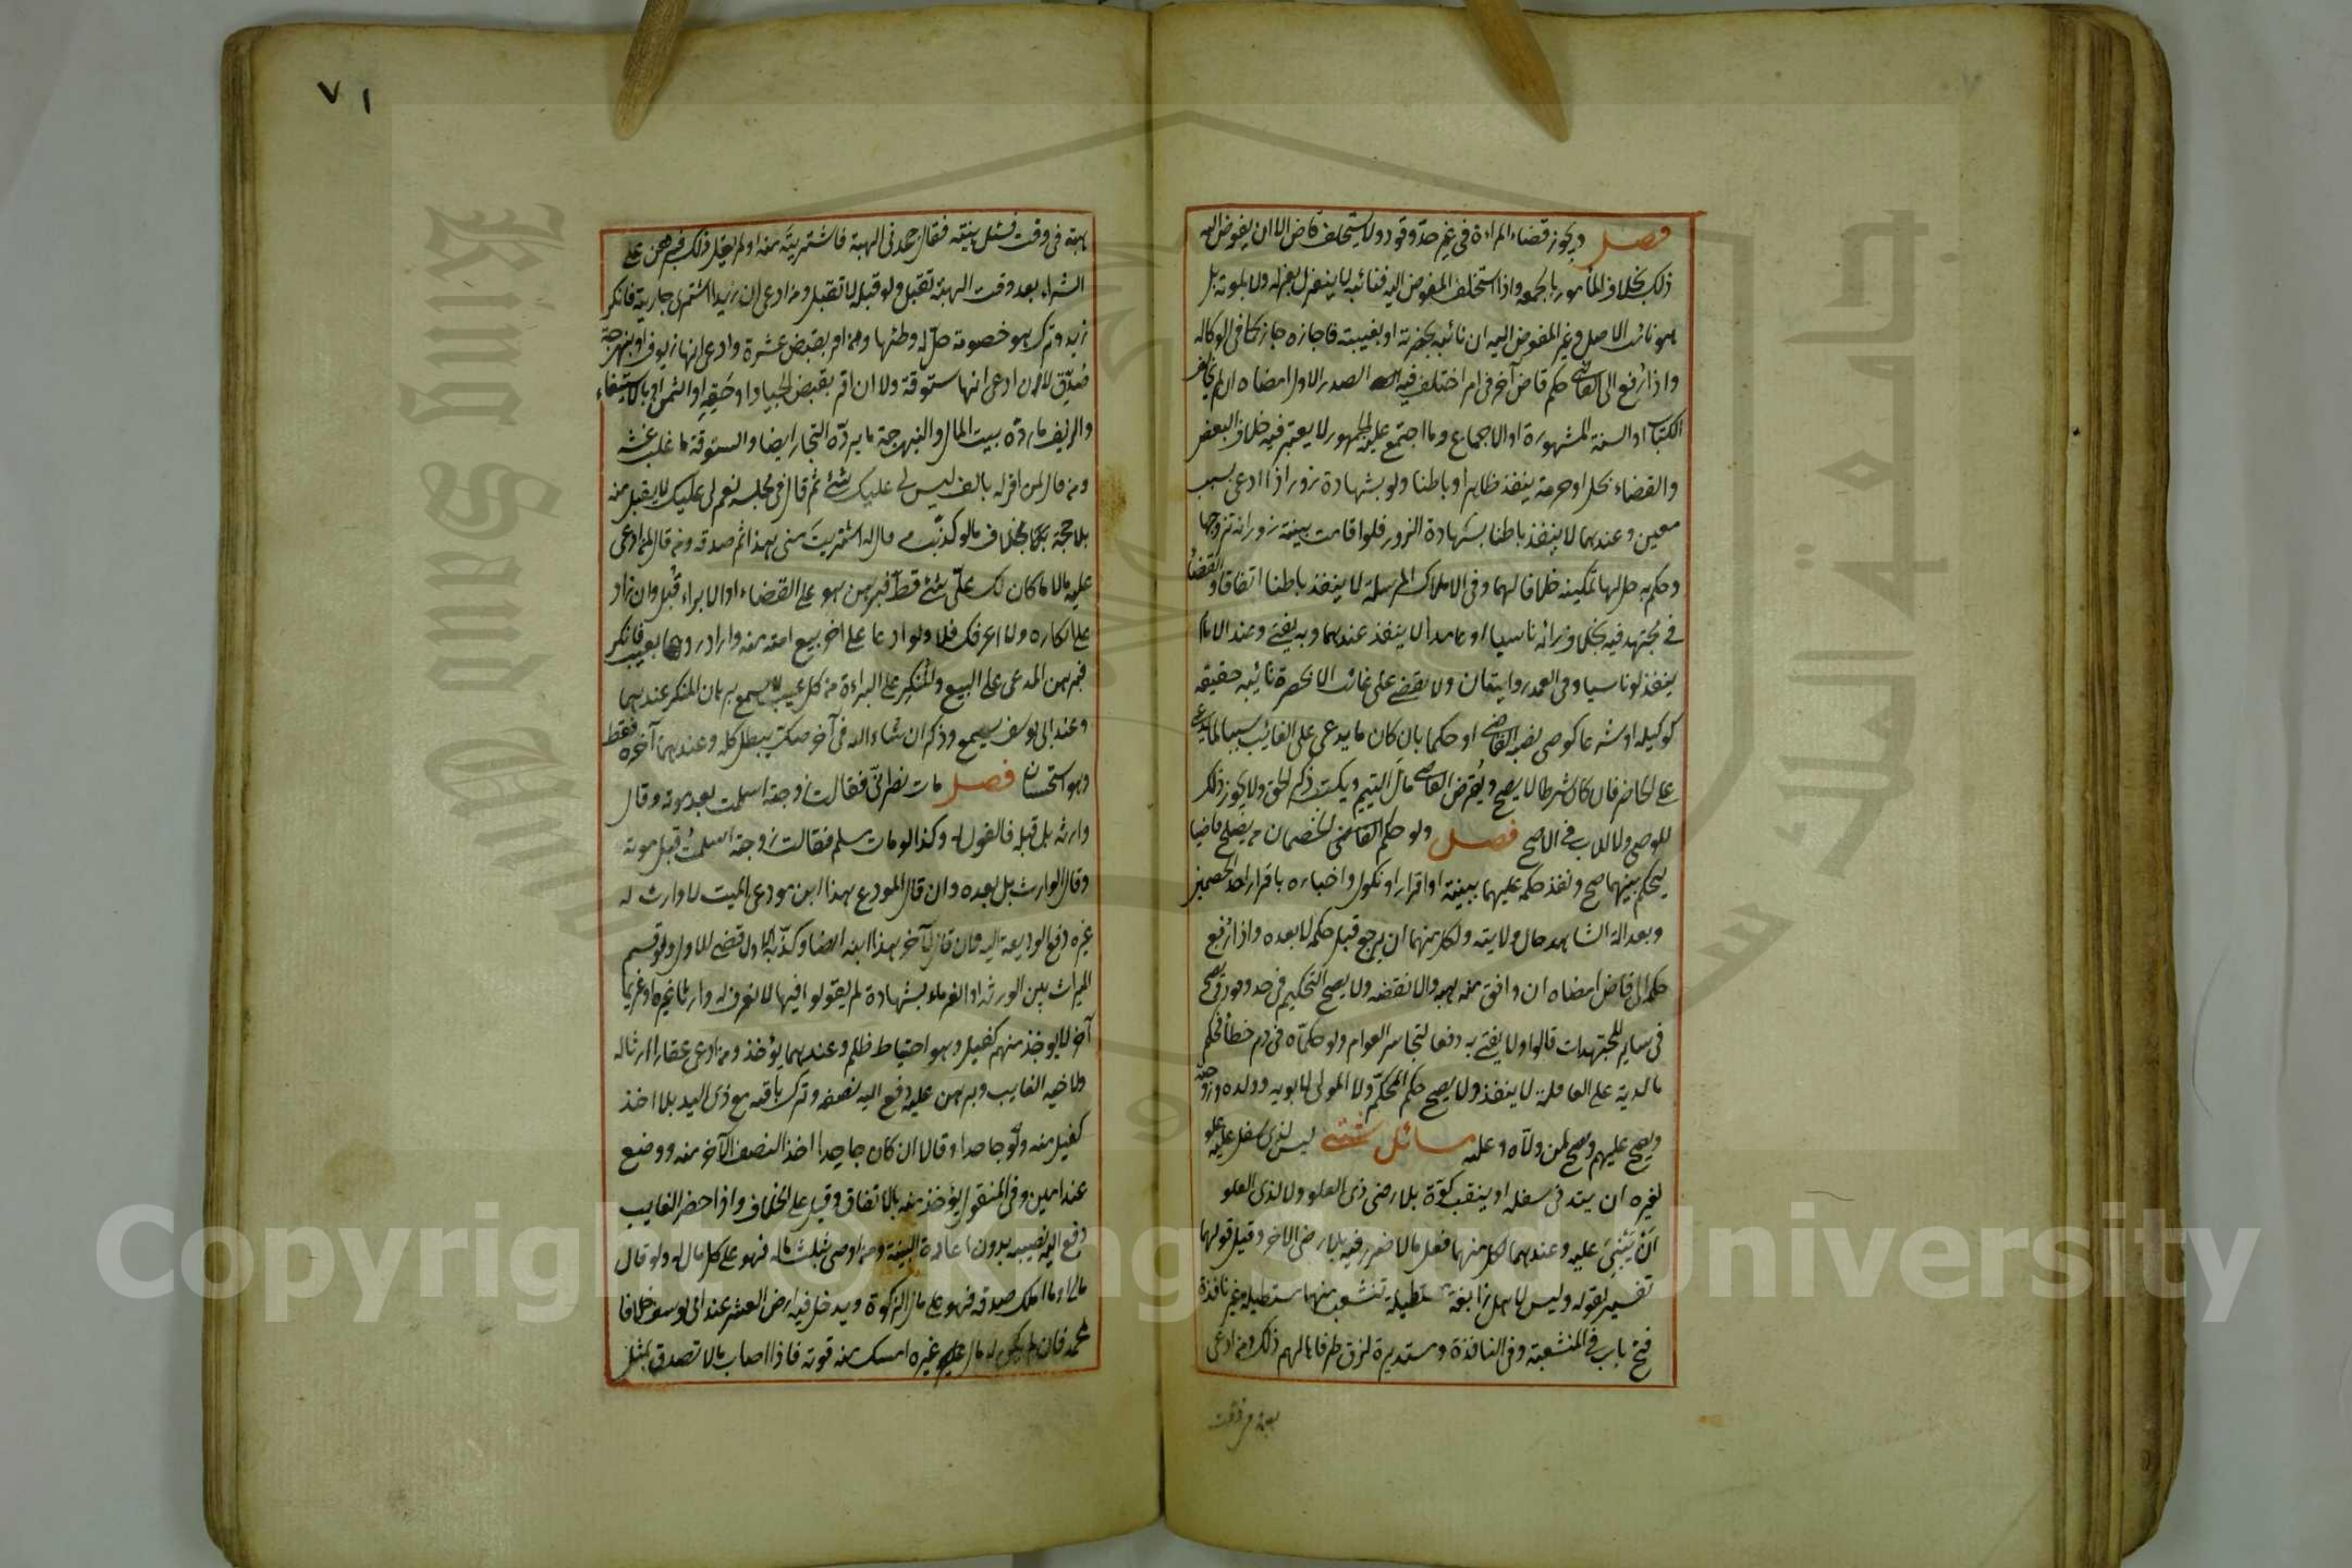 فصل ويجوز قضاء المراة في غير حد وقود ولا يستخلف قاض الا ان يفوض اليه
ذلك بخلاف المأمور بالجمعة واذا استخلف المفوض اليه فنائبه لا ينعزل بعزله ولا بموته بل
هو نائب الاصل وغير المفوض اليه ان نائبه بحضرته او بغيبته فاجازه جاز كما في الوكالة
واذا رفع الى القاضي حكم قاض آخر في امر اختلف فيه الصدر الاول امضاه ان لم يخالف
الكتاب او السنة المشهورة او الاجماع وما اجتمع عليه الجمهور لا يعتبر فيه خلاف البعض
والقضاء بحل او حرمة ينفذ ظاهرا وباطنا ولو بشهادة زور اذا ادعى بسبب
معين وعندهما لا ينفذ باطنا بشهادة الزور فلو اقامت بينة زور انه تزوجها
وحكم به حل لها تمكينه خلافا لهما وفي الاملاك المرسلة لا ينفذ باطنا اتفاقا والقضاء
في مجتهد فيه بخلاف رائه ناسيا او عامدا لا ينفذ عندهما وبه يفتى وعند الامام
ينفذ لو ناسيا وفي العمد روايتان ولا يقضى على غائب الا بحضرة نائبه حقيقة
كوكيله او شرعا كوصي نصبه القاضي او حكما بان كان ما يدعى على الغائب سببا لما يدعى
على الحاضر فان كان شرطا لا يصح ويقرض القاضي مال اليتيم ويكتب ذكر الحق ولا يجوز ذلك
للوصي ولا للاب في الاصح فصل ولو حكم القاضي الخصمان من يصلح قاضيا
ليحكم بينهما صح ونفذ حكمه عليهما ببينة او اقرار او نكول واخباره باقرار احد الخصمين
وبعدالة الشاهد حال ولايته ولكل منهما ان يرجع قبل حكمه لا بعده واذا رفع
حكمه الى قاض امضاه ان وافق مذهبه والا نقضه ولا يصح التحكيم في حد وقود ويصح
في سائر المجتهدات قالوا ولا يفتى به دفعا لتجاسر العوام ولو حكماه في دم خطأ فحكم
بالدية على العاقلة لا ينفذ ولا يصح حكم المحكم ولا المولى لابويه وولده وزوجته
ويصح عليهم ويصح لمن ولاه وعليه مسائل شتى ليس لذي سفل عليه علو
لغيره ان يتد في سفله او ينقب كوة بلا رضى ذي العلو ولا لذي العلو
ان يبني عليه وعندهما لكل منهما فعل ما لا ضرر فيه بلا رضى الاخر وقيل قولهما
تفسير لقوله وليس لاهل زائغة مستطيلة تنشعب منها مستطيلة غير نافذة
فتح باب في المنشعبة وفي النافذة ومستديرة لزق طرفاها لهم ذلك ومن ادعى
بهبة في وقت
٧١
بهبة في وقت فسئل بينته فقال جحدني الهبة فاشتريته منه او لم يقل ذلك فبرهن على
الشراء بعد وقت الهبة تقبل ولو قبله لا تقبل ومن ادعى ان زيدا اشترى جاريته فانكر
زيد وترك هو خصومته حل له وطئها ومن اقر بقبض عشرة وادعى انها زيوف او نبهرجة
صدق لا ان ادعى انها ستوقة ولا ان اقر بقبض الجياد او حقه او الثمن او بالاستيفاء
والزيف ما رده بيت المال والنبهرجة ما يرده التجار ايضا والستوقة ما غلب غشه
ومن قال لمن اقر له بالف ليس لي عليك شئ ثم قال في مجلسه نعم لي عليك لا يقبل منه
بلا حجة بخلاف ما لو كذب من قال له اشتريت مني هذا ثم صدقه ومن قال لمن ادعى
عليه مالا ما كان لك علي شئ قط فبرهن هو على القضاء او الابراء قبل وان زاد
على انكاره ولا اعرفك فلا ولو ادعا على آخر بيع امته منه واراد ردها بعيب فانكر
فبرهن المدعي على البيع والمنكر على البراءة من كل عيب لا يسمع برهان المنكر عندهما
وعند ابي يوسف يسمع وذكر ان شاء الله في آخر صك يبطل كله وعندهما آخره فقط
وهو استحسان فصل مات نصراني فقالت زوجته اسلمت بعد موته وقال
وارثه بل قبله فالقول له وكذا لو مات مسلم فقالت زوجته اسلمت قبل موته
وقال الوارث بل بعده وان قال المودع هذا ابن مودعي الميت لا وارث له
غيره دفع الوديعة اليه فان قال لآخر هذا ابنه ايضا وكذبه الاول قضى للاول ولو قسم
الميراث بين الورثة او الغرماء بشهادة لم يقولوا فيها لا نعرف له وارثا غيره او غريما
آخر لا يوخذ منهم كفيل وهو احتياط ظلم وعندهما يؤخذ ومن ادعى عقارا ارثا له
ولاخيه الغايب وبرهن عليه دفع اليه نصفه وترك باقيه مع ذي اليد بلا اخذ
كفيل منه ولو جاحدا وقالا ان كان جاحدا اخذ النصف الآخر منه ووضع
عند امين وفي المنقول يؤخذ منه بالاتفاق وقيل على الخلاف واذا حضر الغايب
دفع اليه نصيبه بدون اعادة البينة ومن اوصى بثلث ماله فهو على كل مال له ولو قال
مالي او ما املك صدقة فهو على مال الزكوة ويدخل فيه ارض العشر عند ابي يوسف خلافا
لمحمد فان لم يكن له مال غيره امسك منه قوته فاذا اصاب مالا تصدق بمثل
King Saud University
جامعة الملك سعود
Copyright © King Saud University